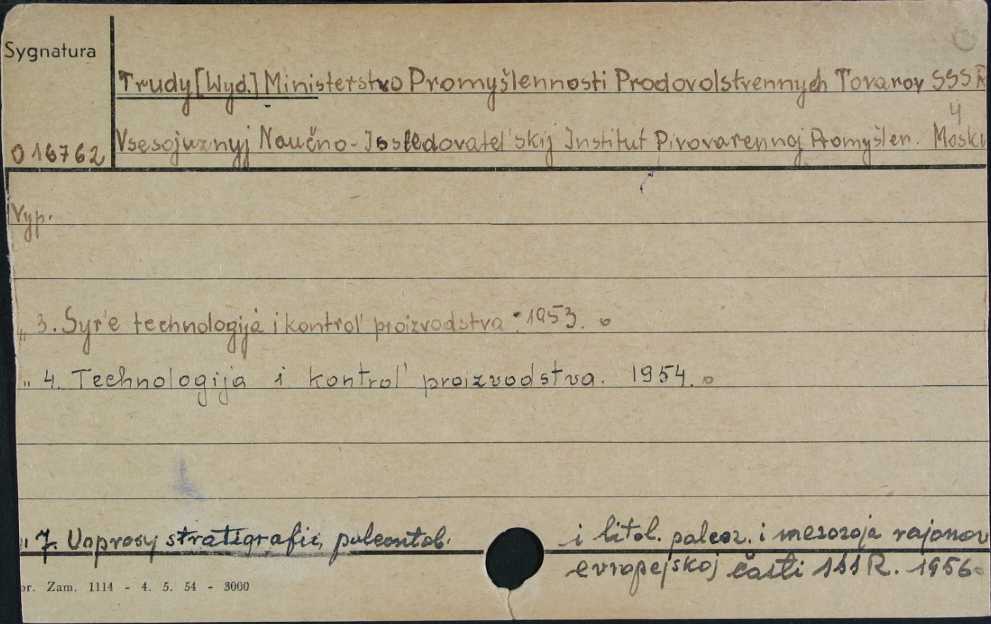 Sygnatura
Trudy [Wyd.] Ministerstvo Promyšlennosti Prodovolstvennych Tovarov SSSR
4
016762 Vsesojuznyj Naučno-Issledovatel'skij Institut Pivovarennoj Promyšlen. Mosk
Vyp.
„ 3. Syr'e technologija i kontrol' proizvodstva. 1953.
„ 4. Technologija i kontrol' proizvodstva. 1954.
„ 7. Voprosy stratigrafii, paleontol. i litol. paleoz. i mezozoja rajonov
evropejskoj časti SSSR. 1956
or. Zam. 1114 - 4. 5. 54 - 3000